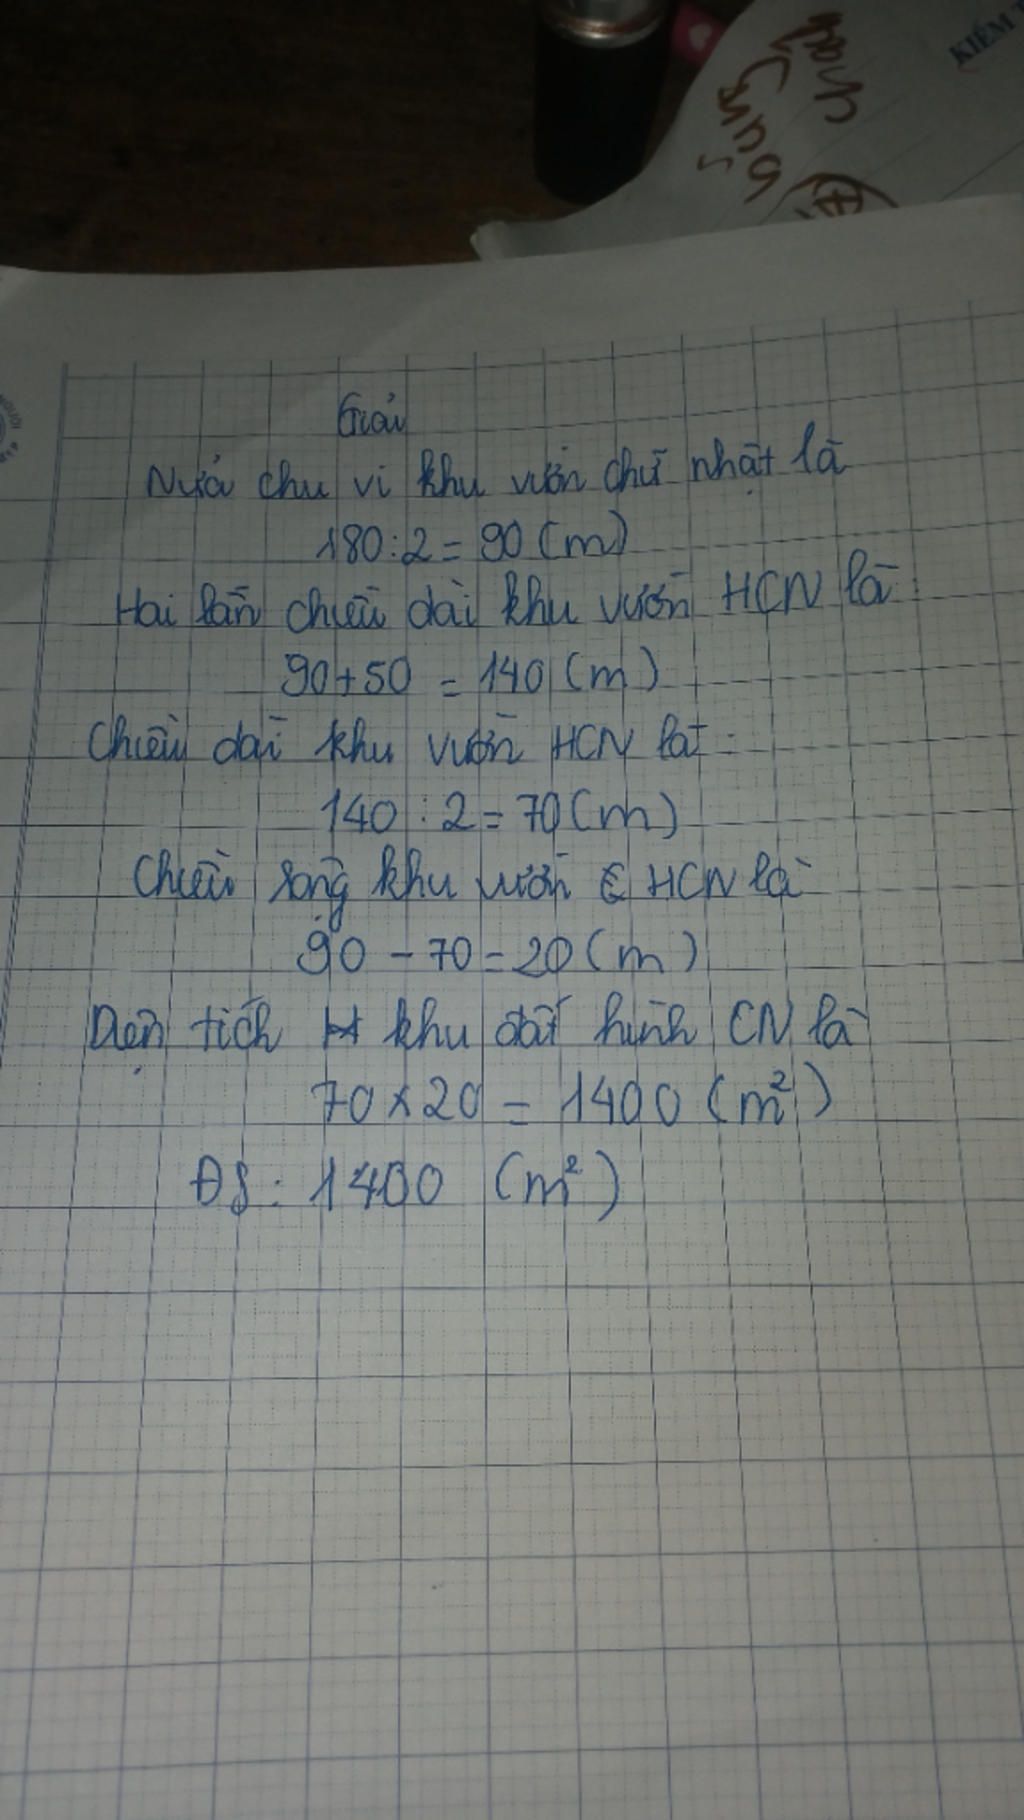 KIỂM T
Giải
Nửa chu vi khu vườn chữ nhật là
180:2 = 90 (m)
Hai lần chiều dài khu vườn HCN là:
90+50 = 140 (m)
Chiều dài khu vườn HCN là:
140 : 2 = 70 (m)
Chiều rộng khu vườn HCN là
90 - 70 = 20 (m)
Diện tích khu đất hình CN là
70 x 20 = 1400 (m²)
ĐS: 1400 (m²)